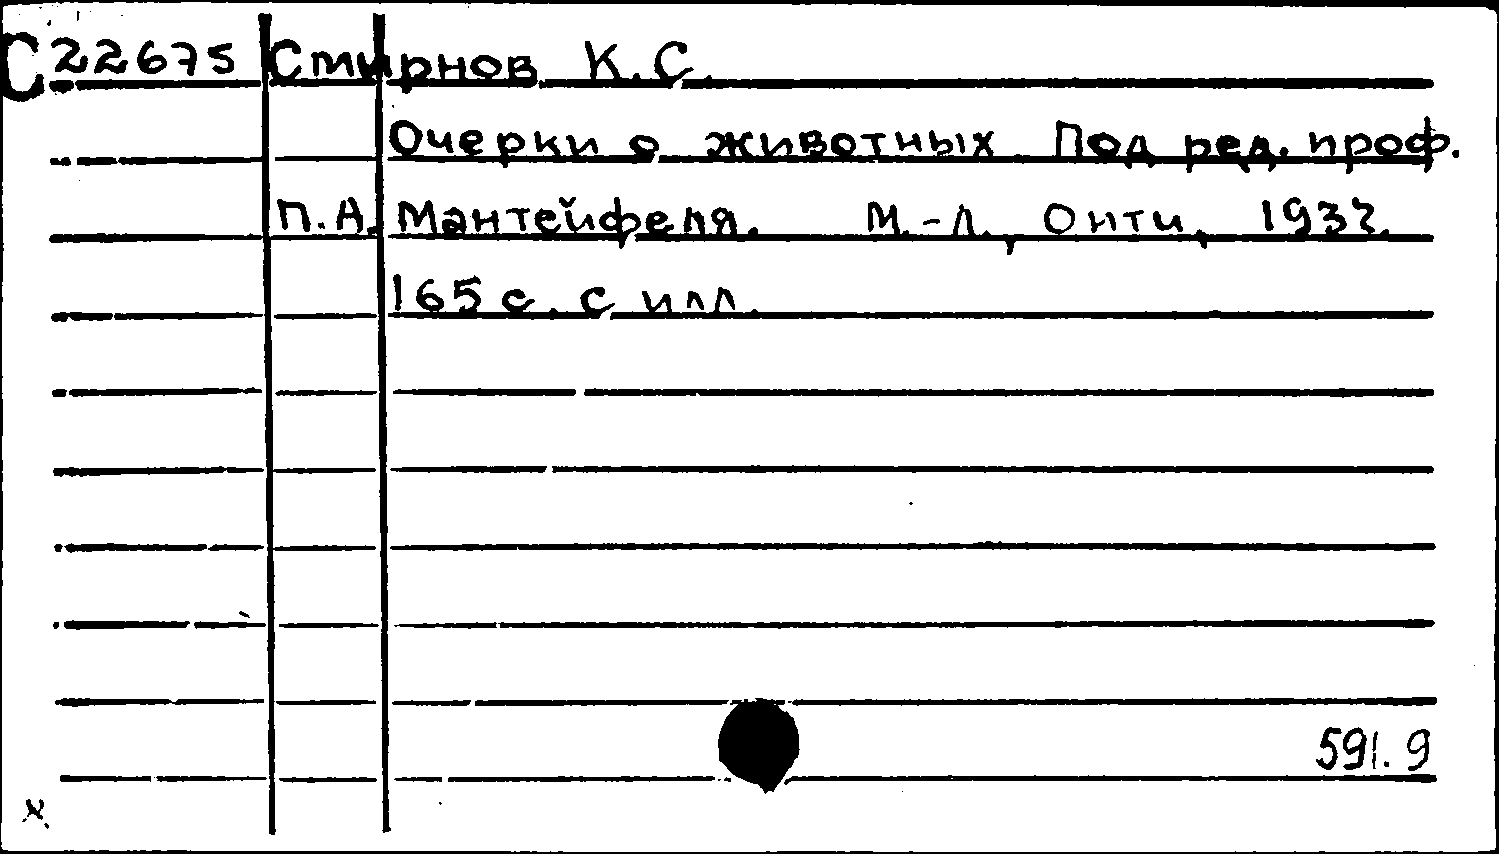 С 22675 Смирнов К.С.
Очерки о животных Под ред. проф.
П.А. Мантейфеля. М.-Л., Онти, 1937.
165 с. с илл.
591.9